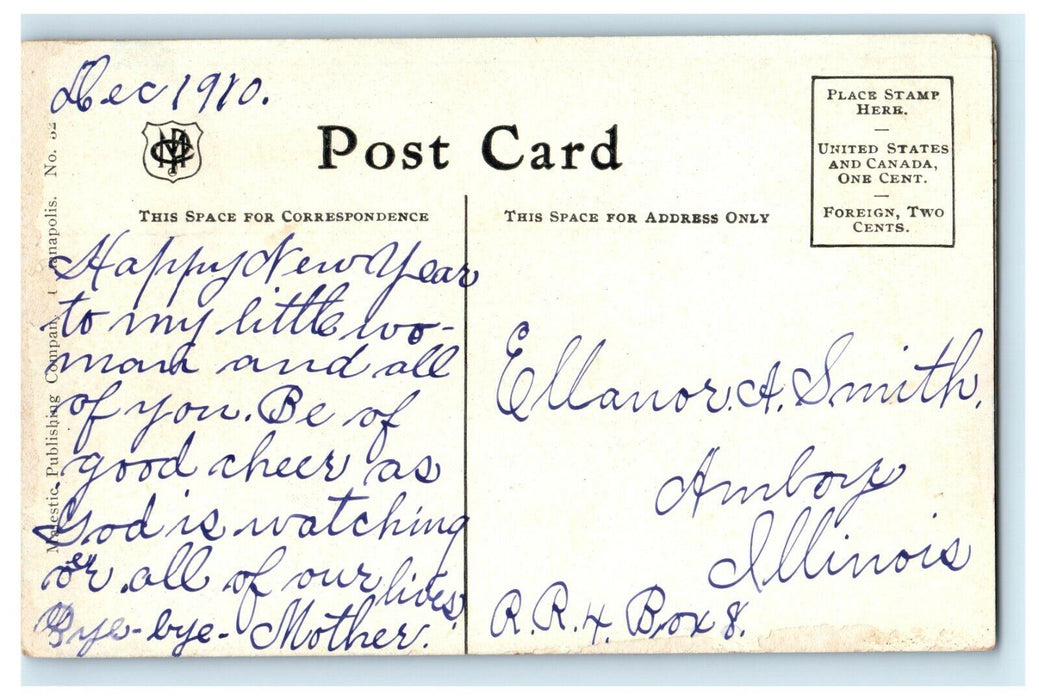 Dec 1910.
Post Card
PLACE STAMP
HERE.
UNITED STATES
AND CANADA,
ONE CENT.
FOREIGN, TWO
CENTS.
THIS SPACE FOR CORRESPONDENCE
THIS SPACE FOR ADDRESS ONLY
Happy New Year
to my little wo-
man and all
of you. Be of
good cheer as
God is watching
o'er all of our lives.
Bye-bye- Mother.
Ellanor. A. Smith,
Amboy
Illinois
R.R.4. Box 8.
Majestic Publishing Company, Indianapolis. No.